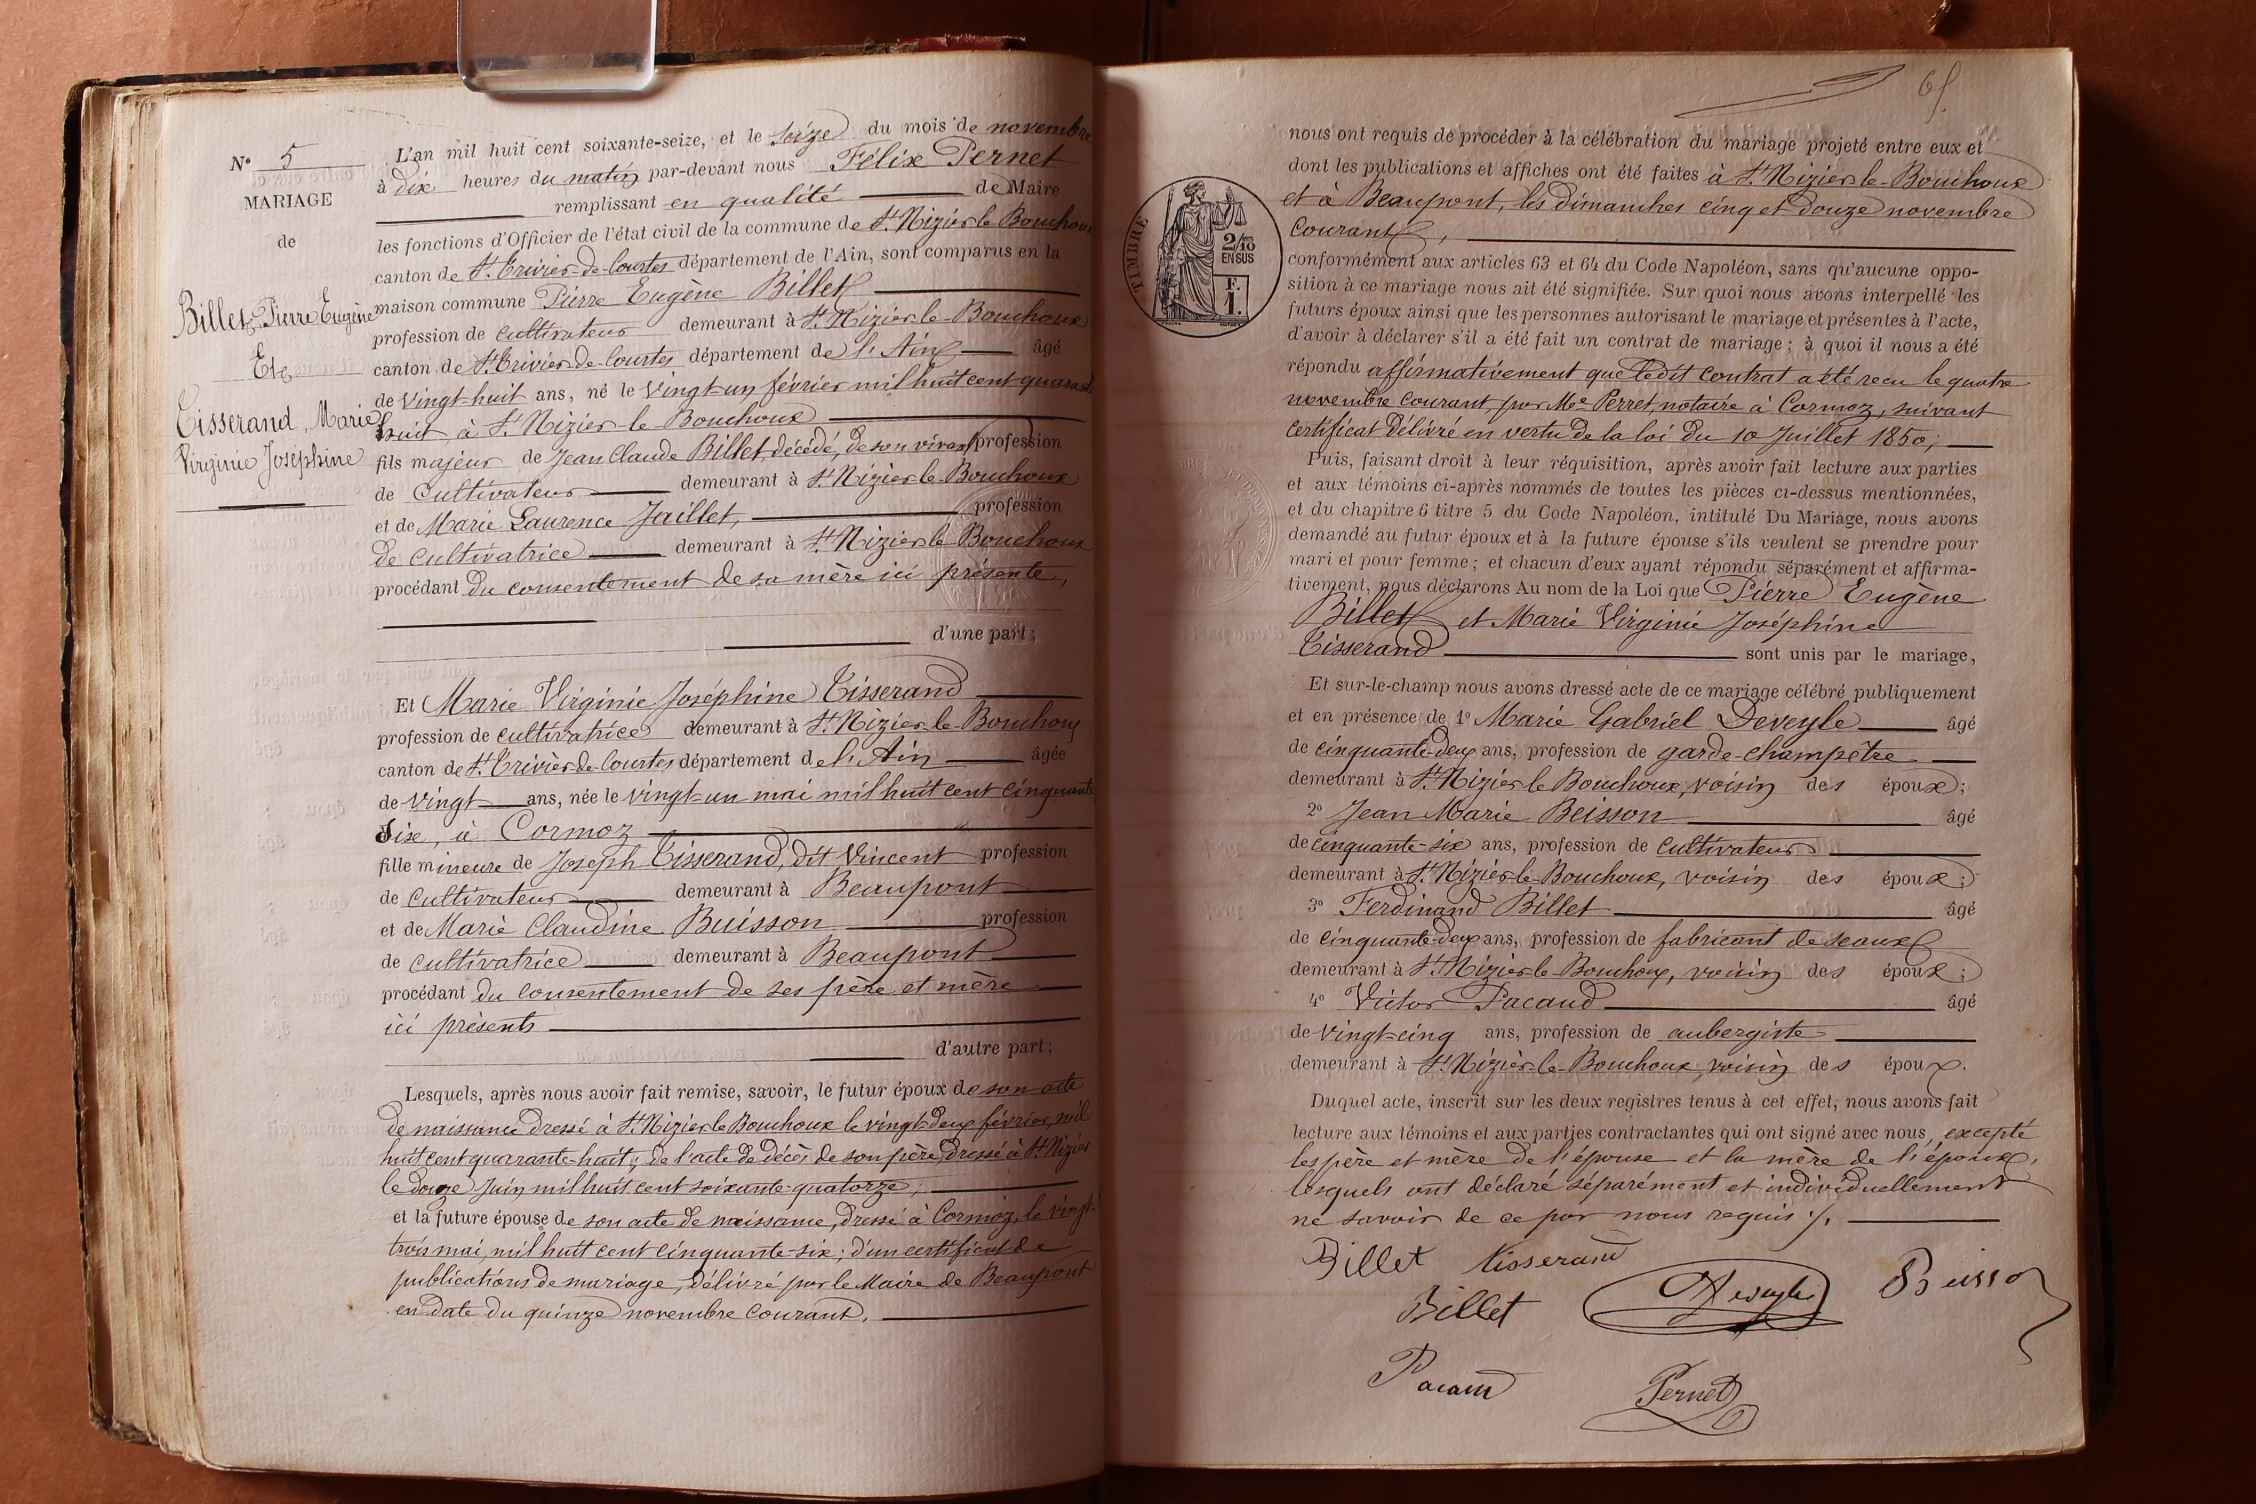 N° 5
MARIAGE
de
Billet, Pierre Eugène
Et
Tisserand, Marie
Virginie Joséphine
L'an mil huit cent soixante-seize, et le seize du mois de novembre
à dix heures du matin par-devant nous Félix Pernet
remplissant en qualité de Maire
les fonctions d'Officier de l'état civil de la commune de St Nizier le Bouchoux
canton de St Trivier-de-Courtes département de l'Ain, sont comparus en la
maison commune Pierre Eugène Billet
profession de cultivateur demeurant à St Nizier le Bouchoux
canton de St Trivier de Courtes département de l'Ain âgé
de vingt-huit ans, né le vingt-un février mil huit cent quarante
huit à St Nizier le Bouchoux
fils majeur de Jean Claude Billet, décédé, de son vivant profession
de cultivateur demeurant à St Nizier le Bouchoux
et de Marie Laurence Jaillet, profession
de cultivatrice demeurant à St Nizier le Bouchoux
procédant du consentement de sa mère ici présente,
d'une part;
Et Marie Virginie Joséphine Tisserand
profession de cultivatrice demeurant à St Nizier le Bouchoux
canton de St Trivier de Courtes département de l'Ain âgée
de vingt ans, née le vingt-un mai mil huit cent cinquante
six, à Cormoz
fille mineure de Joseph Tisserand, dit Vincent profession
de cultivateur demeurant à Beaupont
et de Marie Claudine Buisson profession
de cultivatrice demeurant à Beaupont
procédant du consentement de ses père et mère
ici présents
d'autre part;
Lesquels, après nous avoir fait remise, savoir, le futur époux de son acte
de naissance dressé à St Nizier le Bouchoux le vingt-deux février mil
huit cent quarante-huit; de l'acte de décès de son père, dressé à St Nizier
le douze Juin mil huit cent soixante-quatorze;
et la future épouse de son acte de naissance, dressé à Cormoz, le vingt-
trois mai, mil huit cent cinquante-six; d'un certificat de
publications de mariage, délivré par le Maire de Beaupont
en date du quinze novembre courant.
65
TIMBRE
2/10
EN SUS
F.
1.
nous ont requis de procéder à la célébration du mariage projeté entre eux et
dont les publications et affiches ont été faites à St Nizier le Bouchoux
et à Beaupont, les dimanches cinq et douze novembre
courant,
conformément aux articles 63 et 64 du Code Napoléon, sans qu'aucune oppo-
sition à ce mariage nous ait été signifiée. Sur quoi nous avons interpellé les
futurs époux ainsi que les personnes autorisant le mariage et présentes à l'acte,
d'avoir à déclarer s'il a été fait un contrat de mariage; à quoi il nous a été
répondu affirmativement que ledit contrat a été recu le quatre
novembre courant, par Me Perret, notaire à Cormoz, suivant
certificat délivré en vertu de la loi du 10 Juillet 1850;
Puis, faisant droit à leur réquisition, après avoir fait lecture aux parties
et aux témoins ci-après nommés de toutes les pièces ci-dessus mentionnées,
et du chapitre 6 titre 5 du Code Napoléon, intitulé Du Mariage, nous avons
demandé au futur époux et à la future épouse s'ils veulent se prendre pour
mari et pour femme; et chacun d'eux ayant répondu séparément et affirma-
tivement, nous déclarons Au nom de la Loi que Pierre Eugène
Billet et Marie Virginie Joséphine
Tisserand sont unis par le mariage,
Et sur-le-champ nous avons dressé acte de ce mariage célébré publiquement
et en présence de 1° Marie Gabriel Deveyle âgé
de cinquante-deux ans, profession de garde-champêtre
demeurant à St Nizier le Bouchoux, voisin des époux;
2° Jean Marie Beisson âgé
de cinquante-six ans, profession de cultivateur
demeurant à St Nizier-le-Bouchoux, voisin des époux;
3° Ferdinand Billet âgé
de cinquante-deux ans, profession de fabricant de seaux
demeurant à St Nizier le Bouchoux, voisin des époux;
4° Victor Pacaud âgé
de vingt-cinq ans, profession de aubergiste
demeurant à St Nizier-le-Bouchoux, voisin des époux.
Duquel acte, inscrit sur les deux registres tenus à cet effet, nous avons fait
lecture aux témoins et aux parties contractantes qui ont signé avec nous, excepté
les père et mère de l'épouse et la mère de l'époux,
lesquels ont déclaré séparément et individuellement
ne savoir de ce par nous requis ./.
Billet Tisserand
Billet Deveyle Beisson
Pacaud Pernet